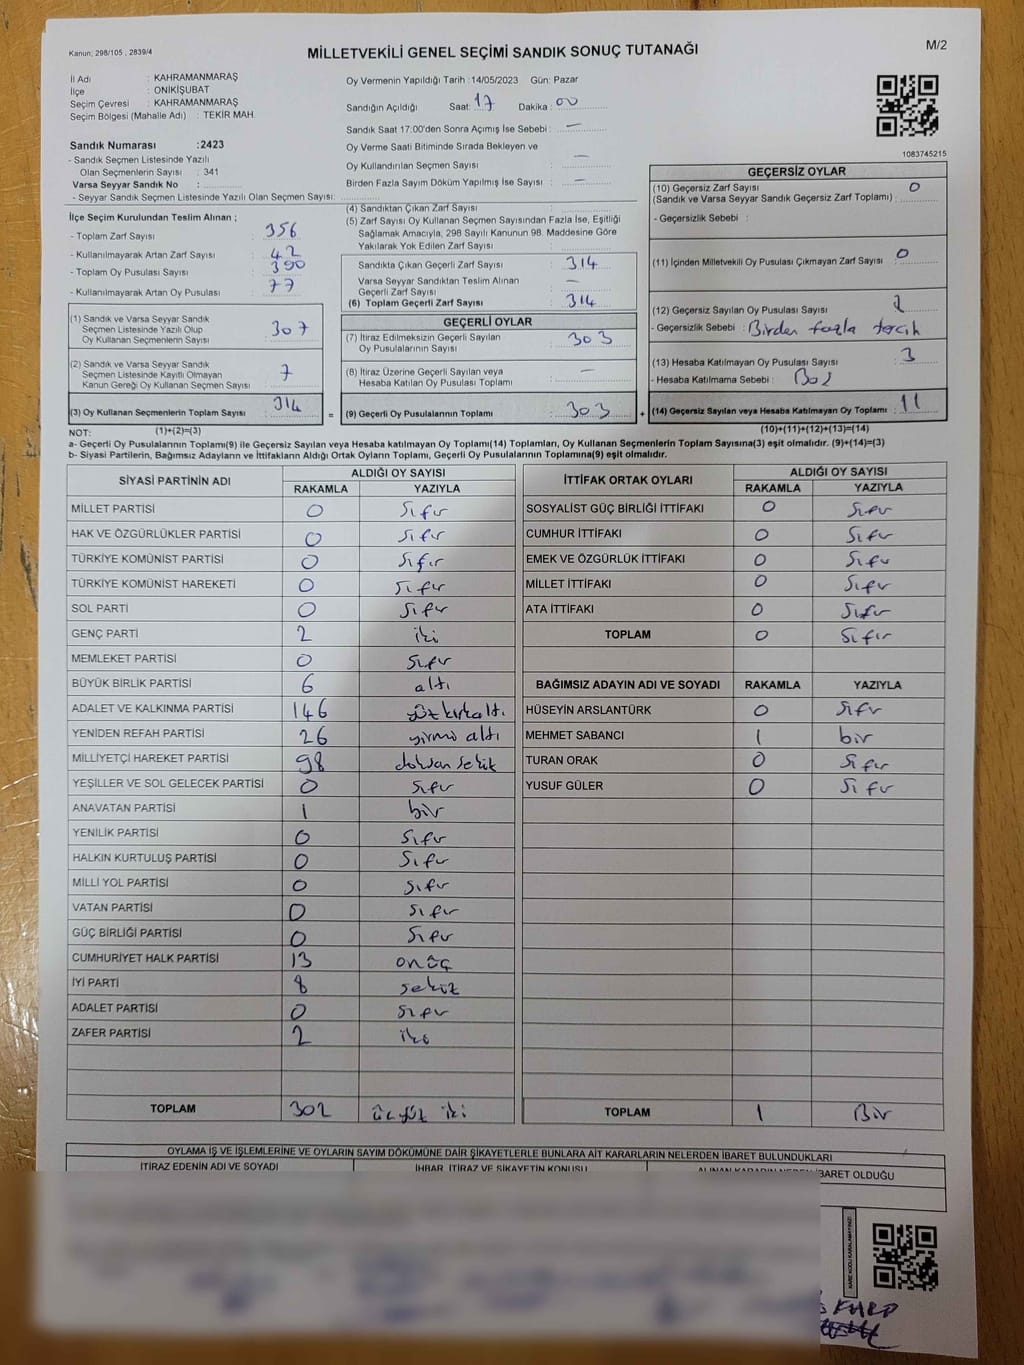 Kanun; 298/105 , 2839/4
MİLLETVEKİLİ GENEL SEÇİMİ SANDIK SONUÇ TUTANAĞI
M/2
İl Adı : KAHRAMANMARAŞ
İlçe : ONİKİŞUBAT
Seçim Çevresi : KAHRAMANMARAŞ
Seçim Bölgesi (Mahalle Adı) : TEKİR MAH.
Sandık Numarası :2423
- Sandık Seçmen Listesinde Yazılı
Olan Seçmenlerin Sayısı : 341
Varsa Seyyar Sandık No :
- Seyyar Sandık Seçmen Listesinde Yazılı Olan Seçmen Sayısı:
Oy Vermenin Yapıldığı Tarih :14/05/2023 Gün: Pazar
Sandığın Açıldığı Saat: 17 Dakika : 00
Sandık Saat 17:00'den Sonra Açımış İse Sebebi : —
Oy Verme Saati Bitiminde Sırada Bekleyen ve
Oy Kullandırılan Seçmen Sayısı : —
Birden Fazla Sayım Döküm Yapılmış İse Sayısı : —
1083745215
İlçe Seçim Kurulundan Teslim Alınan ;
- Toplam Zarf Sayısı : 356
- Kullanılmayarak Artan Zarf Sayısı : 42
- Toplam Oy Pusulası Sayısı : 390
- Kullanılmayarak Artan Oy Pusulası : 77
(1) Sandık ve Varsa Seyyar Sandık
Seçmen Listesinde Yazılı Olup
Oy Kullanan Seçmenlerin Sayısı : 307
(2) Sandık ve Varsa Seyyar Sandık
Seçmen Listesinde Kayıtlı Olmayan
Kanun Gereği Oy Kullanan Seçmen Sayısı : 7
(3) Oy Kullanan Seçmenlerin Toplam Sayısı : 314
(4) Sandıktan Çıkan Zarf Sayısı :
(5) Zarf Sayısı Oy Kullanan Seçmen Sayısından Fazla İse, Eşitliği
Sağlamak Amacıyla, 298 Sayılı Kanunun 98. Maddesine Göre
Yakılarak Yok Edilen Zarf Sayısı :
Sandıkta Çıkan Geçerli Zarf Sayısı : 314
Varsa Seyyar Sandıktan Teslim Alınan
Geçerli Zarf Sayısı : —
(6) Toplam Geçerli Zarf Sayısı : 314
GEÇERLİ OYLAR
(7) İtiraz Edilmeksizin Geçerli Sayılan
Oy Pusulalarının Sayısı : 303
(8) İtiraz Üzerine Geçerli Sayılan veya
Hesaba Katılan Oy Pusulası Toplamı : —
= (9) Geçerli Oy Pusulalarının Toplamı : 303 +
GEÇERSİZ OYLAR
(10) Geçersiz Zarf Sayısı 0
(Sandık ve Varsa Seyyar Sandık Geçersiz Zarf Toplamı) :
- Geçersizlik Sebebi :
(11) İçinden Milletvekili Oy Pusulası Çıkmayan Zarf Sayısı : 0
(12) Geçersiz Sayılan Oy Pusulası Sayısı : 2
- Geçersizlik Sebebi : Birden fazla tercih
(13) Hesaba Katılmayan Oy Pusulası Sayısı : 3
- Hesaba Katılmama Sebebi :
(14) Geçersiz Sayılan veya Hesaba Katılmayan Oy Toplamı : 11
NOT: (1)+(2)=(3) (10)+(11)+(12)+(13)=(14)
a- Geçerli Oy Pusulalarının Toplamı(9) ile Geçersiz Sayılan veya Hesaba katılmayan Oy Toplamı(14) Toplamları, Oy Kullanan Seçmenlerin Toplam Sayısına(3) eşit olmalıdır. (9)+(14)=(3)
b- Siyasi Partilerin, Bağımsız Adayların ve İttifakların Aldığı Ortak Oyların Toplamı, Geçerli Oy Pusulalarının Toplamına(9) eşit olmalıdır.
SİYASİ PARTİNİN ADI ALDIĞI OY SAYISI
RAKAMLA YAZIYLA
MİLLET PARTİSİ 0 Sıfır
HAK VE ÖZGÜRLÜKLER PARTİSİ 0 Sıfır
TÜRKİYE KOMÜNİST PARTİSİ 0 Sıfır
TÜRKİYE KOMÜNİST HAREKETİ 0 Sıfır
SOL PARTİ 0 Sıfır
GENÇ PARTİ 2 iki
MEMLEKET PARTİSİ 0 Sıfır
BÜYÜK BİRLİK PARTİSİ 6 altı
ADALET VE KALKINMA PARTİSİ 146 yüzkırkaltı
YENİDEN REFAH PARTİSİ 26 yirmi altı
MİLLİYETÇİ HAREKET PARTİSİ 98 doksan sekiz
YEŞİLLER VE SOL GELECEK PARTİSİ 0 Sıfır
ANAVATAN PARTİSİ 1 bir
YENİLİK PARTİSİ 0 Sıfır
HALKIN KURTULUŞ PARTİSİ 0 Sıfır
MİLLİ YOL PARTİSİ 0 Sıfır
VATAN PARTİSİ 0 Sıfır
GÜÇ BİRLİĞİ PARTİSİ 0 Sıfır
CUMHURİYET HALK PARTİSİ 13 onüç
İYİ PARTİ 8 sekiz
ADALET PARTİSİ 0 Sıfır
ZAFER PARTİSİ 2 iki
TOPLAM 302 üçyüz iki
İTTİFAK ORTAK OYLARI ALDIĞI OY SAYISI
RAKAMLA YAZIYLA
SOSYALİST GÜÇ BİRLİĞİ İTTİFAKI 0 Sıfır
CUMHUR İTTİFAKI 0 Sıfır
EMEK VE ÖZGÜRLÜK İTTİFAKI 0 Sıfır
MİLLET İTTİFAKI 0 Sıfır
ATA İTTİFAKI 0 Sıfır
TOPLAM 0 Sıfır
BAĞIMSIZ ADAYIN ADI VE SOYADI RAKAMLA YAZIYLA
HÜSEYİN ARSLANTÜRK 0 Sıfır
MEHMET SABANCI 1 bir
TURAN ORAK 0 Sıfır
YUSUF GÜLER 0 Sıfır
TOPLAM 1 Bir
OYLAMA İŞ VE İŞLEMLERİNE VE OYLARIN SAYIM DÖKÜMÜNE DAİR ŞİKAYETLERLE BUNLARA AİT KARARLARIN NELERDEN İBARET BULUNDUKLARI
İTİRAZ EDENİN ADI VE SOYADI İHBAR, İTİRAZ VE ŞİKAYETİN KONUSU ALINAN KARARIN NEDEN İBARET OLDUĞU
KARE KODU KARALAMAYINIZ!